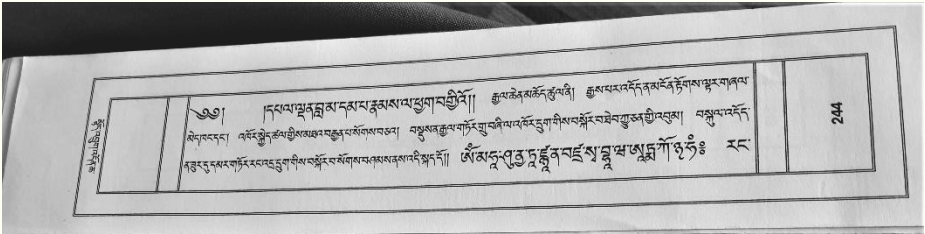 ༄༅། །དཔལ་ལྡན་བླ་མ་དམ་པ་རྣམས་ལ་ཕྱག་བགྱིའོ།། རྒྱལ་ཆེན་མཆོད་ཚུལ་ནི། རྒྱས་པར་འདོད་ན་མངོན་རྟོགས་ལྟར་གཞལ་
མེད་ཁང་དང་། འཁོར་སྐྱེད་ཚལ་གྱིས་མཐར་བརྒྱན་པ་སོགས་བཅའ། བསྡུས་ན་རྒྱལ་གཏོར་གྲུ་བཞི་ལ་འཁོར་དྲུག་གིས་བསྐོར་བ་ཐེབ་ཀྱུ་ཅན་གྱི་འབུམ། བསྐུལ་འདོད་
ན་ཟུར་དུ་དམར་གཏོར་རང་འདྲ་དྲུག་གིས་བསྐོར་བ་སོགས་བཤམས་ནས་འདི་སྐད་དོ།། ཨོཾ་མ་ཧཱ་ཤུ་ནྱ་ཏཱ་ཛྙཱ་ན་བཛྲ་སྭ་བྷཱ་ཝ་ཨཱཏྨ་ཀོ྅ཧཾ༔ རང་
244